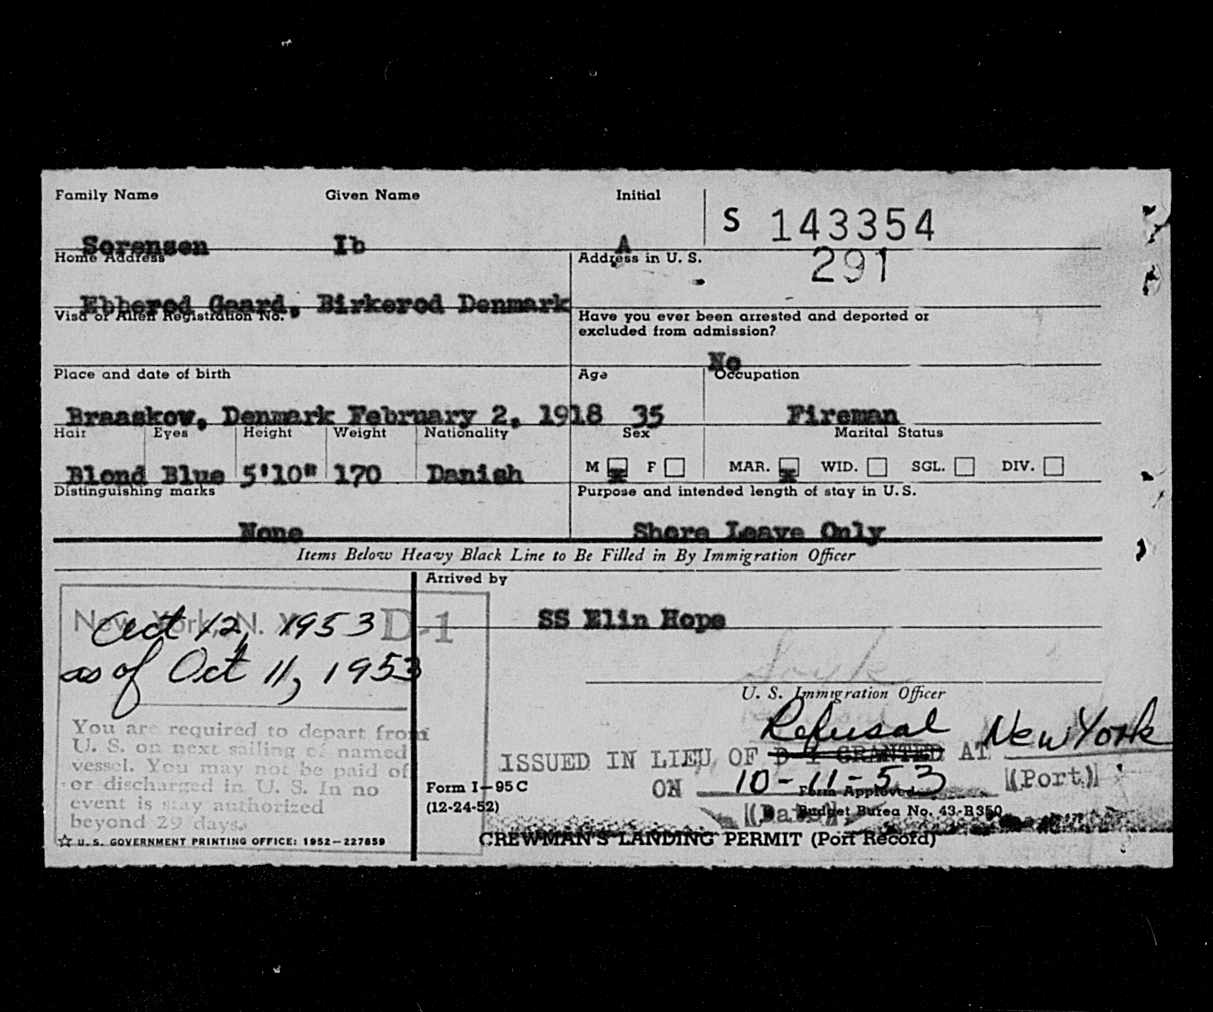 Family Name Given Name Initial
S 143354
Sorensen Ib A
Home Address Address in U. S. 291
Ebberod Gaard, Birkerod Denmark
Visa or Alien Registration No. Have you ever been arrested and deported or
excluded from admission?
No
Place and date of birth Age Occupation
Braaskow, Denmark February 2, 1918 35 Fireman
Hair Eyes Height Weight Nationality Sex Marital Status
Blond Blue 5'10" 170 Danish M F MAR. WID. SGL. DIV.
Distinguishing marks Purpose and intended length of stay in U. S.
None Shore Leave Only
Items Below Heavy Black Line to Be Filled in By Immigration Officer
Arrived by
SS Elin Hope
New York, N. Y. D-1
Oct 12, 1953
as of Oct 11, 1953
U. S. Immigration Officer
You are required to depart from
U. S. on next sailing of named
vessel. You may not be paid off
or discharged in U. S. In no
event is stay authorized
beyond 29 days.
Refusal New York
ISSUED IN LIEU OF D-1 GRANTED AT
ON 10-11-53 (Port)
(Date)
Form I-95 C
(12-24-52)
Form Approved
Budget Burea No. 43-R350
☆ U. S. GOVERNMENT PRINTING OFFICE: 1952-227859
CREWMAN'S LANDING PERMIT (Port Record)